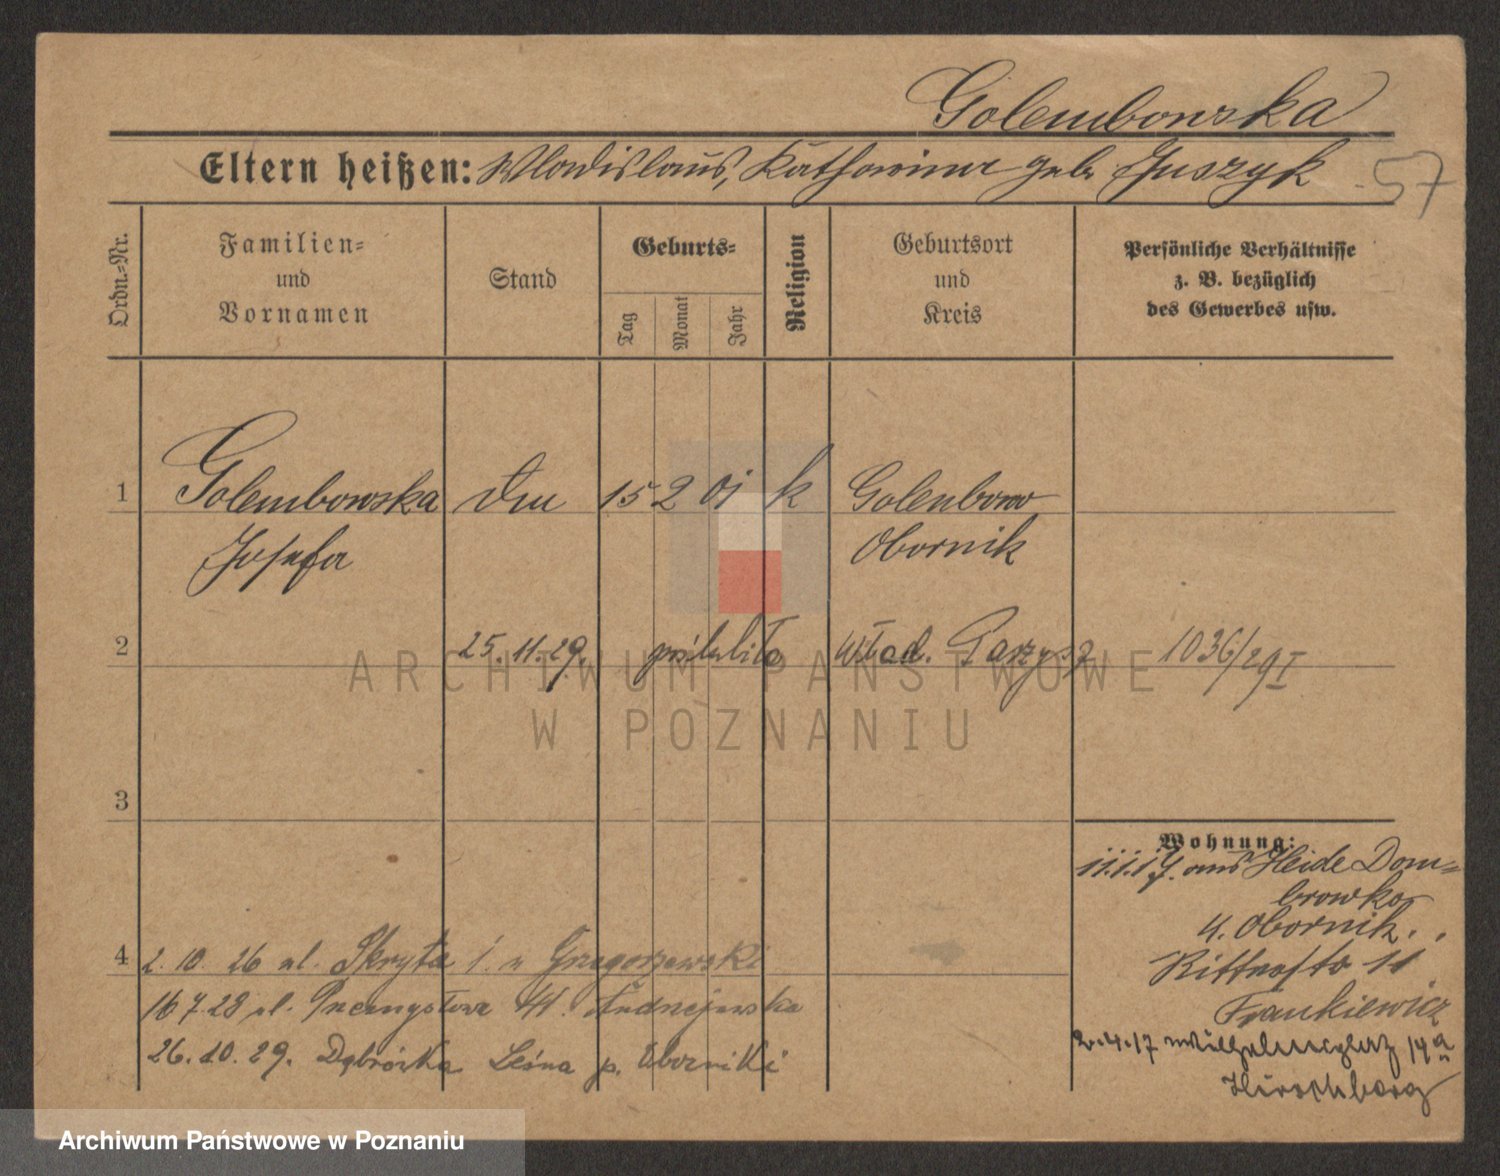 Golembowska
Eltern heißen: Wladislaus, Katharina geb Juszyk
57
Ordn.-Nr.
Familien-
und
Vornamen
Stand
Geburts-
Tag
Monat
Jahr
Religion
Geburtsort
und
Kreis
Persönliche Verhältnisse
z. B. bezüglich
des Gewerbes usw.
1 Golembowska 15 2 01 k Golenbowo
Josefa Obornik
2 25.11.29. poślubiła Wład. 1036/29 I
ARCHIWUM PAŃSTWOWE
W POZNANIU
3
Wohnung:
11.1.17. aus Heide Dom-
browka
Obornik.
Ritterstr 11
Frankiewicz
2.4.17 Wilhelmsplatz 14a
Hirschberg
4 2. 10. 26 ul. Skryta 1. u Grzegorzewski
16 7. 28 ul. Przemysłowa 41. Andrzejewska
26. 10. 29. Dąbrówka Leśna p. Oborniki
Archiwum Państwowe w Poznaniu